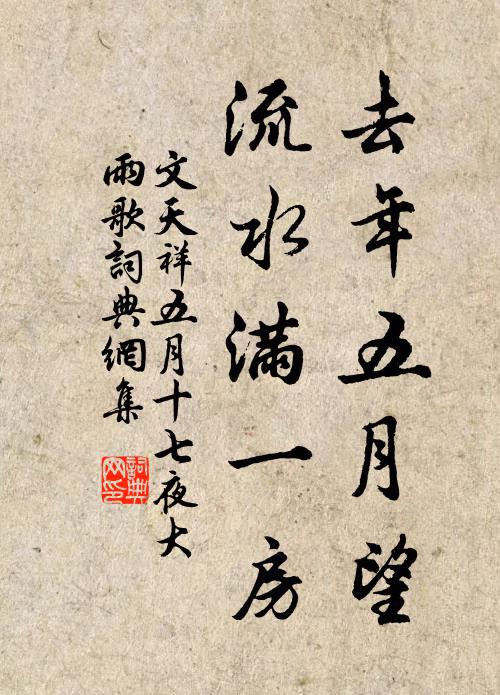 去年五月望
流水滿一房
文天祥五月十七夜大
雨歌詞典網集
詞典網印